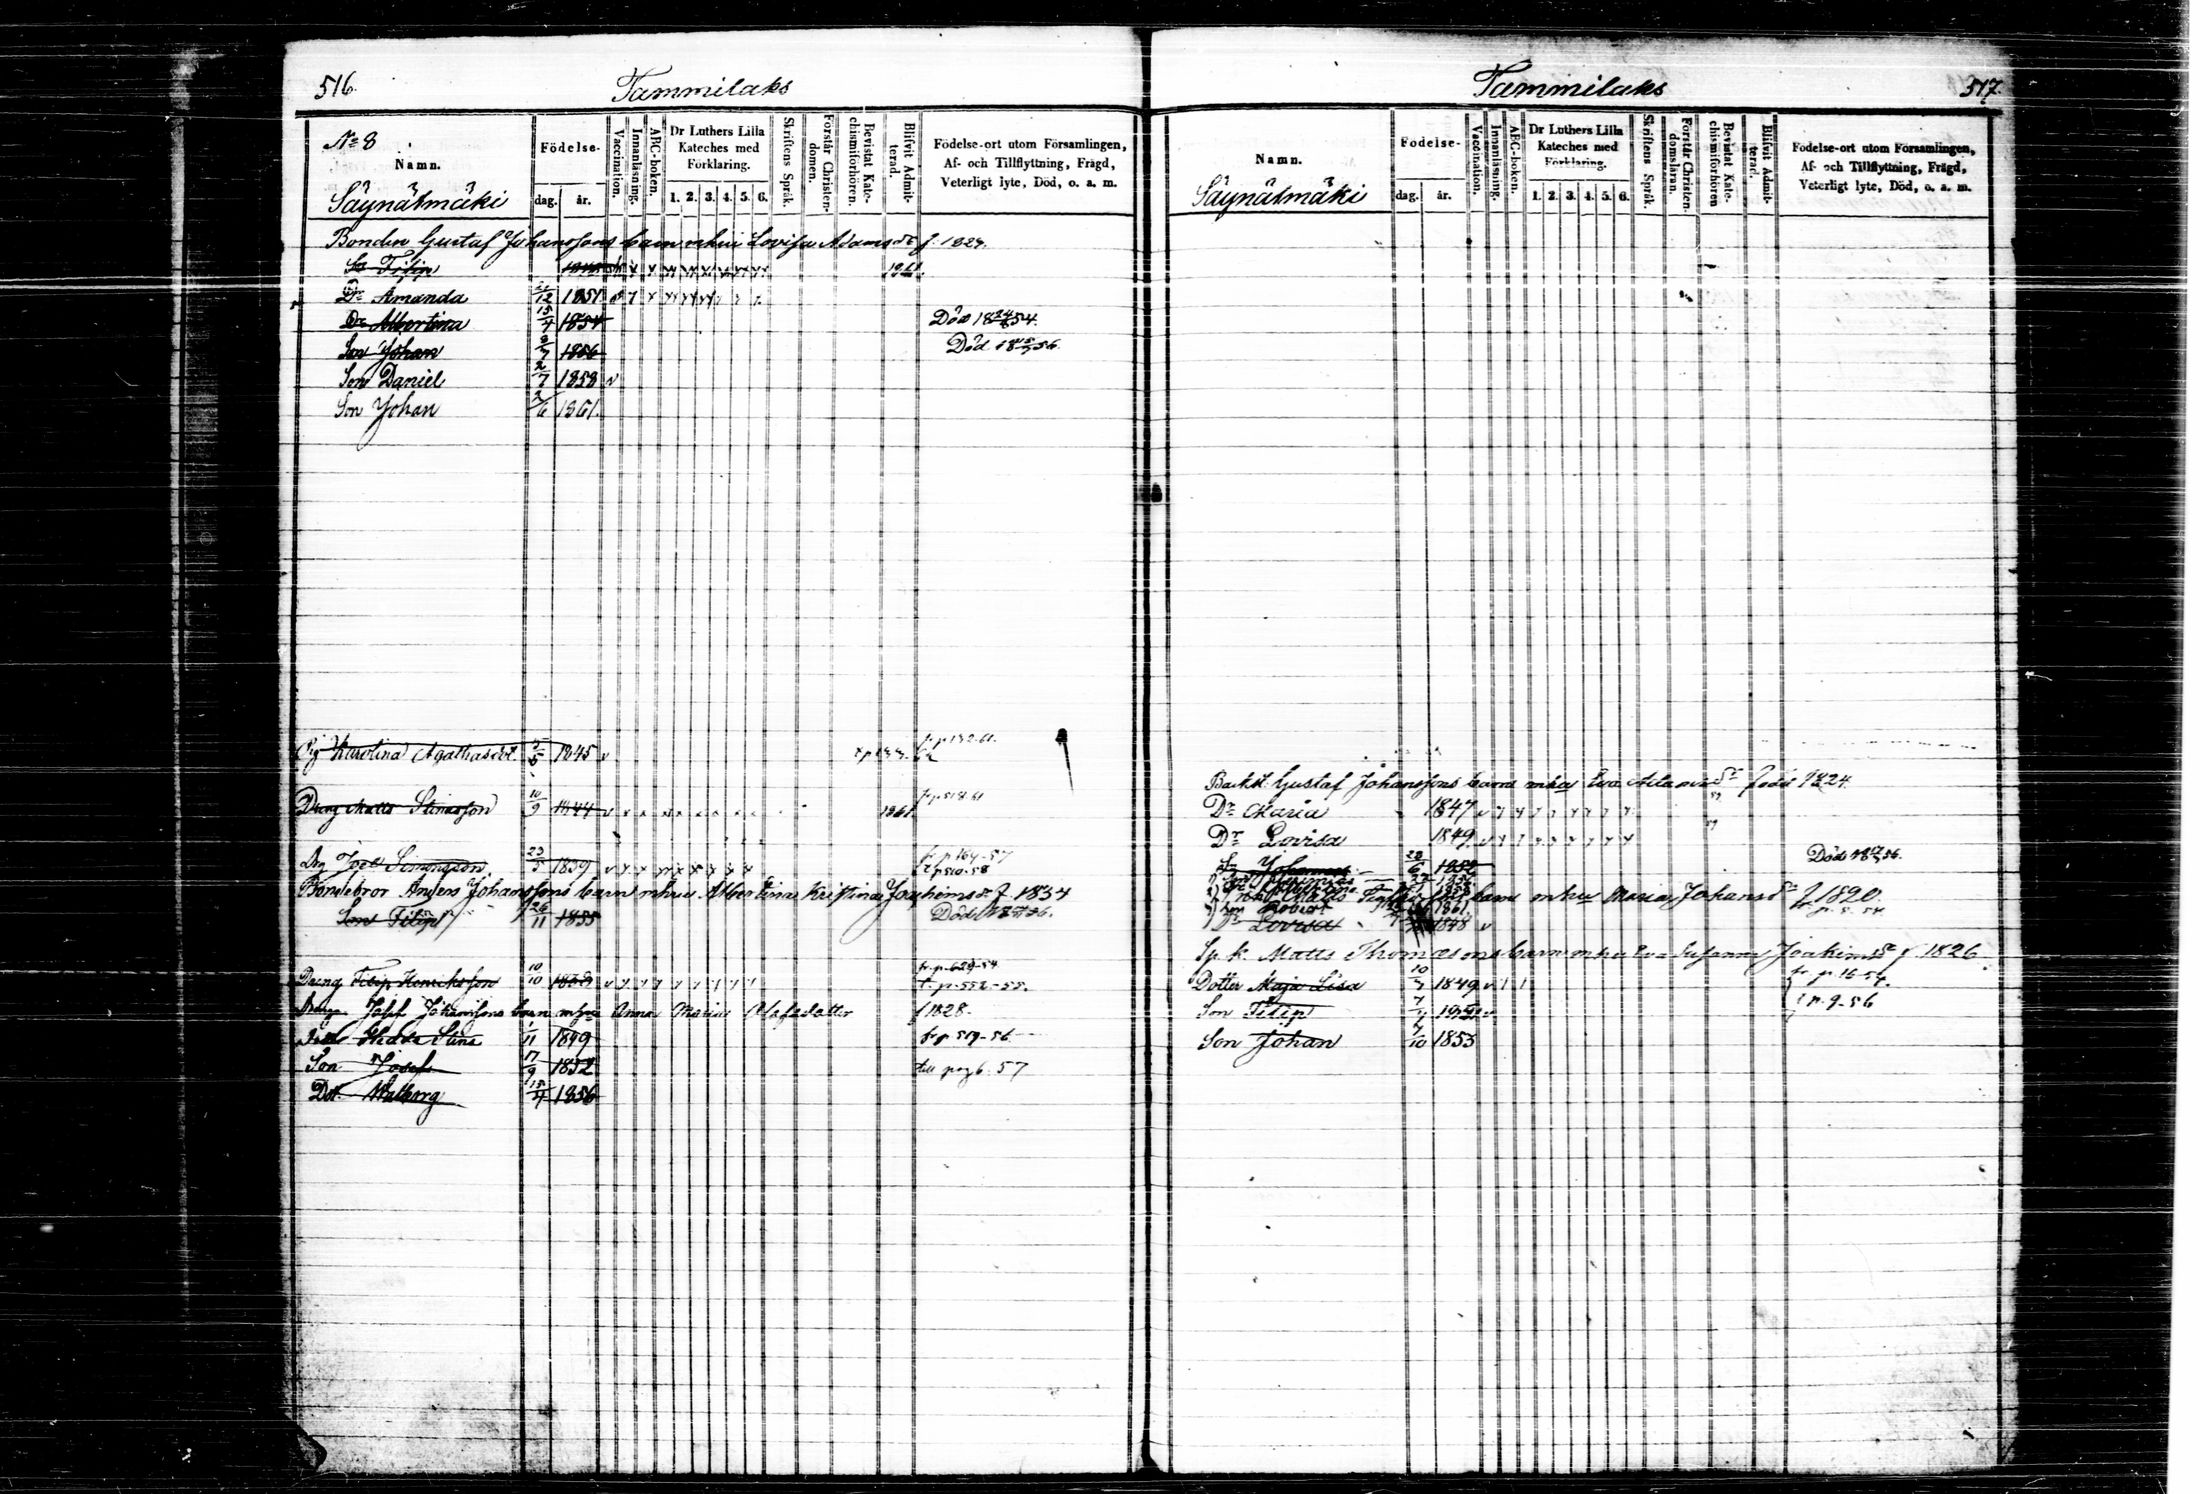 516.
Tammilaks
No 8
Namn.
Säynätmäki
Födelse-
dag. år.
Vaccination.
Innanläsning.
ABC-boken.
Dr Luthers Lilla Kateches med Förklaring.
1. 2. 3. 4. 5. 6.
Skriftens Språk.
Förstår Christendomen.
Bevistat Katechismiförhören.
Blifvit Admitterad.
Födelse-ort utom Församlingen,
Af- och Tillflyttning, Frägd,
Veterligt lyte, Död, o. a. m.
Bonden Gustaf Johanssons barn mhu Lovisa Adamsdr f. 1824.
Filip 1861.
Dr Amanda 12 1851
Dr Albertina 15/4 1854 Död 18 24/8 54.
Son Johan 9/7 1856 Död 18 15/7 56.
Son Daniel 2/7 1858
Son Johan 2/6 1861.
Pig Karolina Agathasdr. 5 1845 fr p 132-61.
Dräng Matts Simonsson 10/9 1844 1861 fr p 518 61
Drg Joel Simonsson 23/5 1839 fr p 164-57
t p 510-58
Bondebror Anders Johanssons barn mhu Albertina Kristina Joachimsdr f. 1834
Son Filip 26/11 1855 Död 56.
Dräng Filip Henriksson 10/10 1838 fr. p. 629-54
t. p. 552-55.
Josef Johanssons barn mhu Anna Maria Olofsdotter f 1828.
Hedda Stina 1/11 1849 fr p 519-56
Son Josef 17/9 1852 till pag 6. 57
Dot. Walborg 15/4 1856
Tammilaks
517.
Namn.
Säynätmäki
Födelse-
dag. år.
Vaccination.
Innanläsning.
ABC-boken.
Dr Luthers Lilla Kateches med Förklaring.
1. 2. 3. 4. 5. 6.
Skriftens Språk.
Förstår Christendomsläran.
Bevistat Katechismiförhören
Blifvit Admitterad.
Födelse-ort utom Församlingen,
Af- och Tillflyttning, Frägd,
Veterligt lyte, Död, o. a. m.
Backst. Gustaf Johanssons barn mhu Eva Adamsdr född 1824.
Dr Maria 1847
Dr Lovisa 1849
Johannes 28/6 1852 Död 56.
Matts barn mhu Maria Johansdr f 1820.
Son Robert 1861.
Dr Lovisa 1848
Sp. k. Matts Thomæsons barn mhu Eva Susanna Joakimsdr f. 1826
Dotter Maja Lisa 10/7 1849 fr. p. 16-54.
Son Filip t p. 9-56
Son Johan 7/10 1853